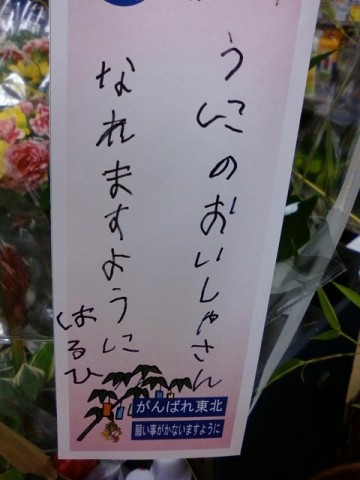 うにのおいしゃさん
なれますように
はるひ
がんばれ東北
願い事がかないますように